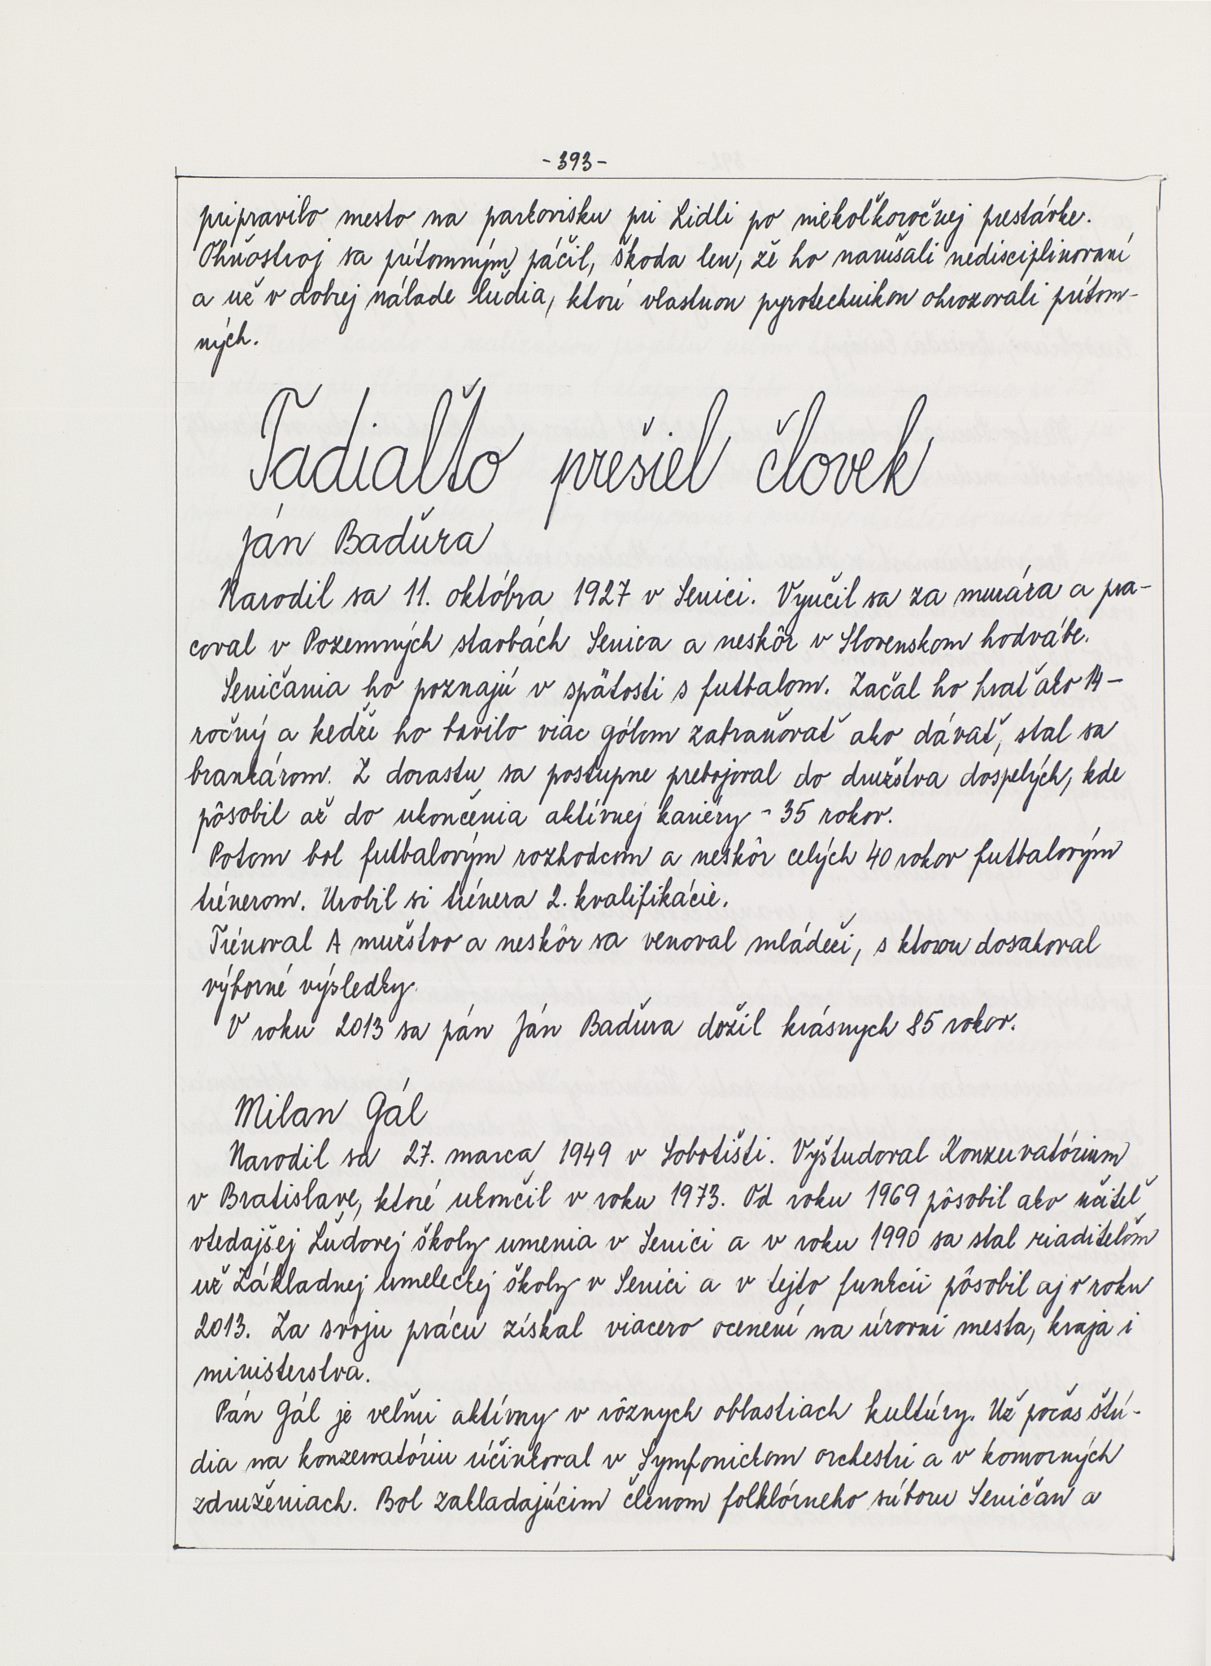 -393-
pripravilo mesto na parkovisku pri Lidli po niekoľkoročnej prestávke.
Ohňostroj sa prítomným páčil, škoda len, že ho narušali nedisciplinovaní
a už v dobrej nálade ľudia, ktorí vlastnou pyrotechnikou ohrozovali prítom-
ných.
Tadiaľto prešiel človek
Ján Baďura
Narodil sa 11. októbra 1927 v Senici. Vyučil sa za murára a pra-
coval v Pozemných stavbách Senica a neskôr v Slovenskom hodvábe.
Seničania ho poznajú v spätosti s futbalom. Začal ho hrať ako 14-
ročný a keďže ho bavilo viac gólom zabraňovať ako dávať, stal sa
brankárom. Z dorastu sa postupne prebojoval do družstva dospelých, kde
pôsobil až do ukončenia aktívnej kariéry - 35 rokov.
Potom bol futbalovým rozhodcom a neskôr celých 40 rokov futbalovým
trénerom. Urobil si trénera 2. kvalifikácie.
Trénoval A mužstvo a neskôr sa venoval mládeži, s ktorou dosahoval
výborné výsledky.
V roku 2013 sa pán Ján Baďura dožil krásnych 85 rokov.
Milan Gál
Narodil sa 27. marca 1949 v Sobotišti. Vyštudoval Konzervatórium
v Bratislave, ktoré ukončil v roku 1973. Od roku 1969 pôsobil ako učiteľ
vtedajšej Ľudovej školy umenia v Senici a v roku 1990 sa stal riaditeľom
už Základnej umeleckej školy v Senici a v tejto funkcii pôsobil aj v roku
2013. Za svoju prácu získal viacero ocenení na úrovni mesta, kraja i
ministerstva.
Pán Gál je veľmi aktívny v rôznych oblastiach kultúry. Už počas štú-
dia na konzervatóriu účinkoval v Symfonickom orchestri a v komorných
združeniach. Bol zakladajúcim členom folklórneho súboru Seničan a